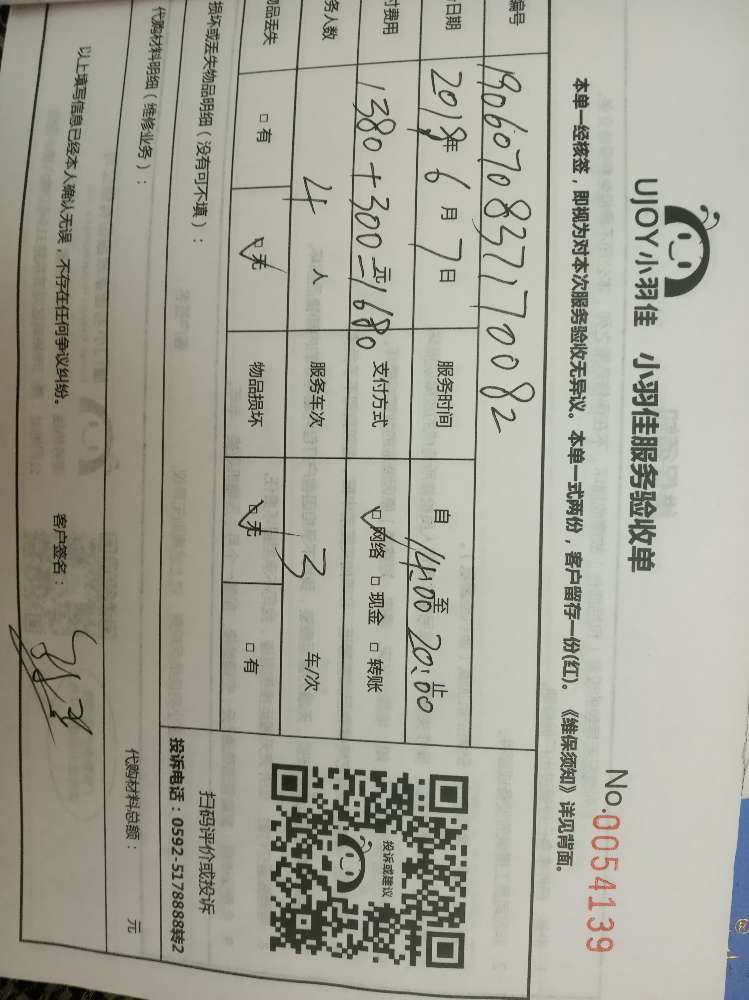 UJOY小羽佳 小羽佳服务验收单
No.0054139
本单一经核签，即视为对本次服务验收无异议。本单一式两份，客户留存一份(红)。《维保须知》详见背面。
编号 1906070837170082
日期 2019年6月7日 服务时间 自14:00至20:00止
费用 1380+300元=1680 支付方式 ☑网络 □现金 □转账
务人数 4人 服务车次 3 车/次
物品丢失 □有 ☑无 物品损坏 ☑无 □有
损坏或丢失物品明细（没有可不填）：
投诉或建议
扫码评价或投诉
投诉电话：0592-5178888转2
代购材料明细（维修业务）： 代购材料总额： 元
以上填写信息已经本人确认无误，不存在任何争议纠纷。 客户签名：